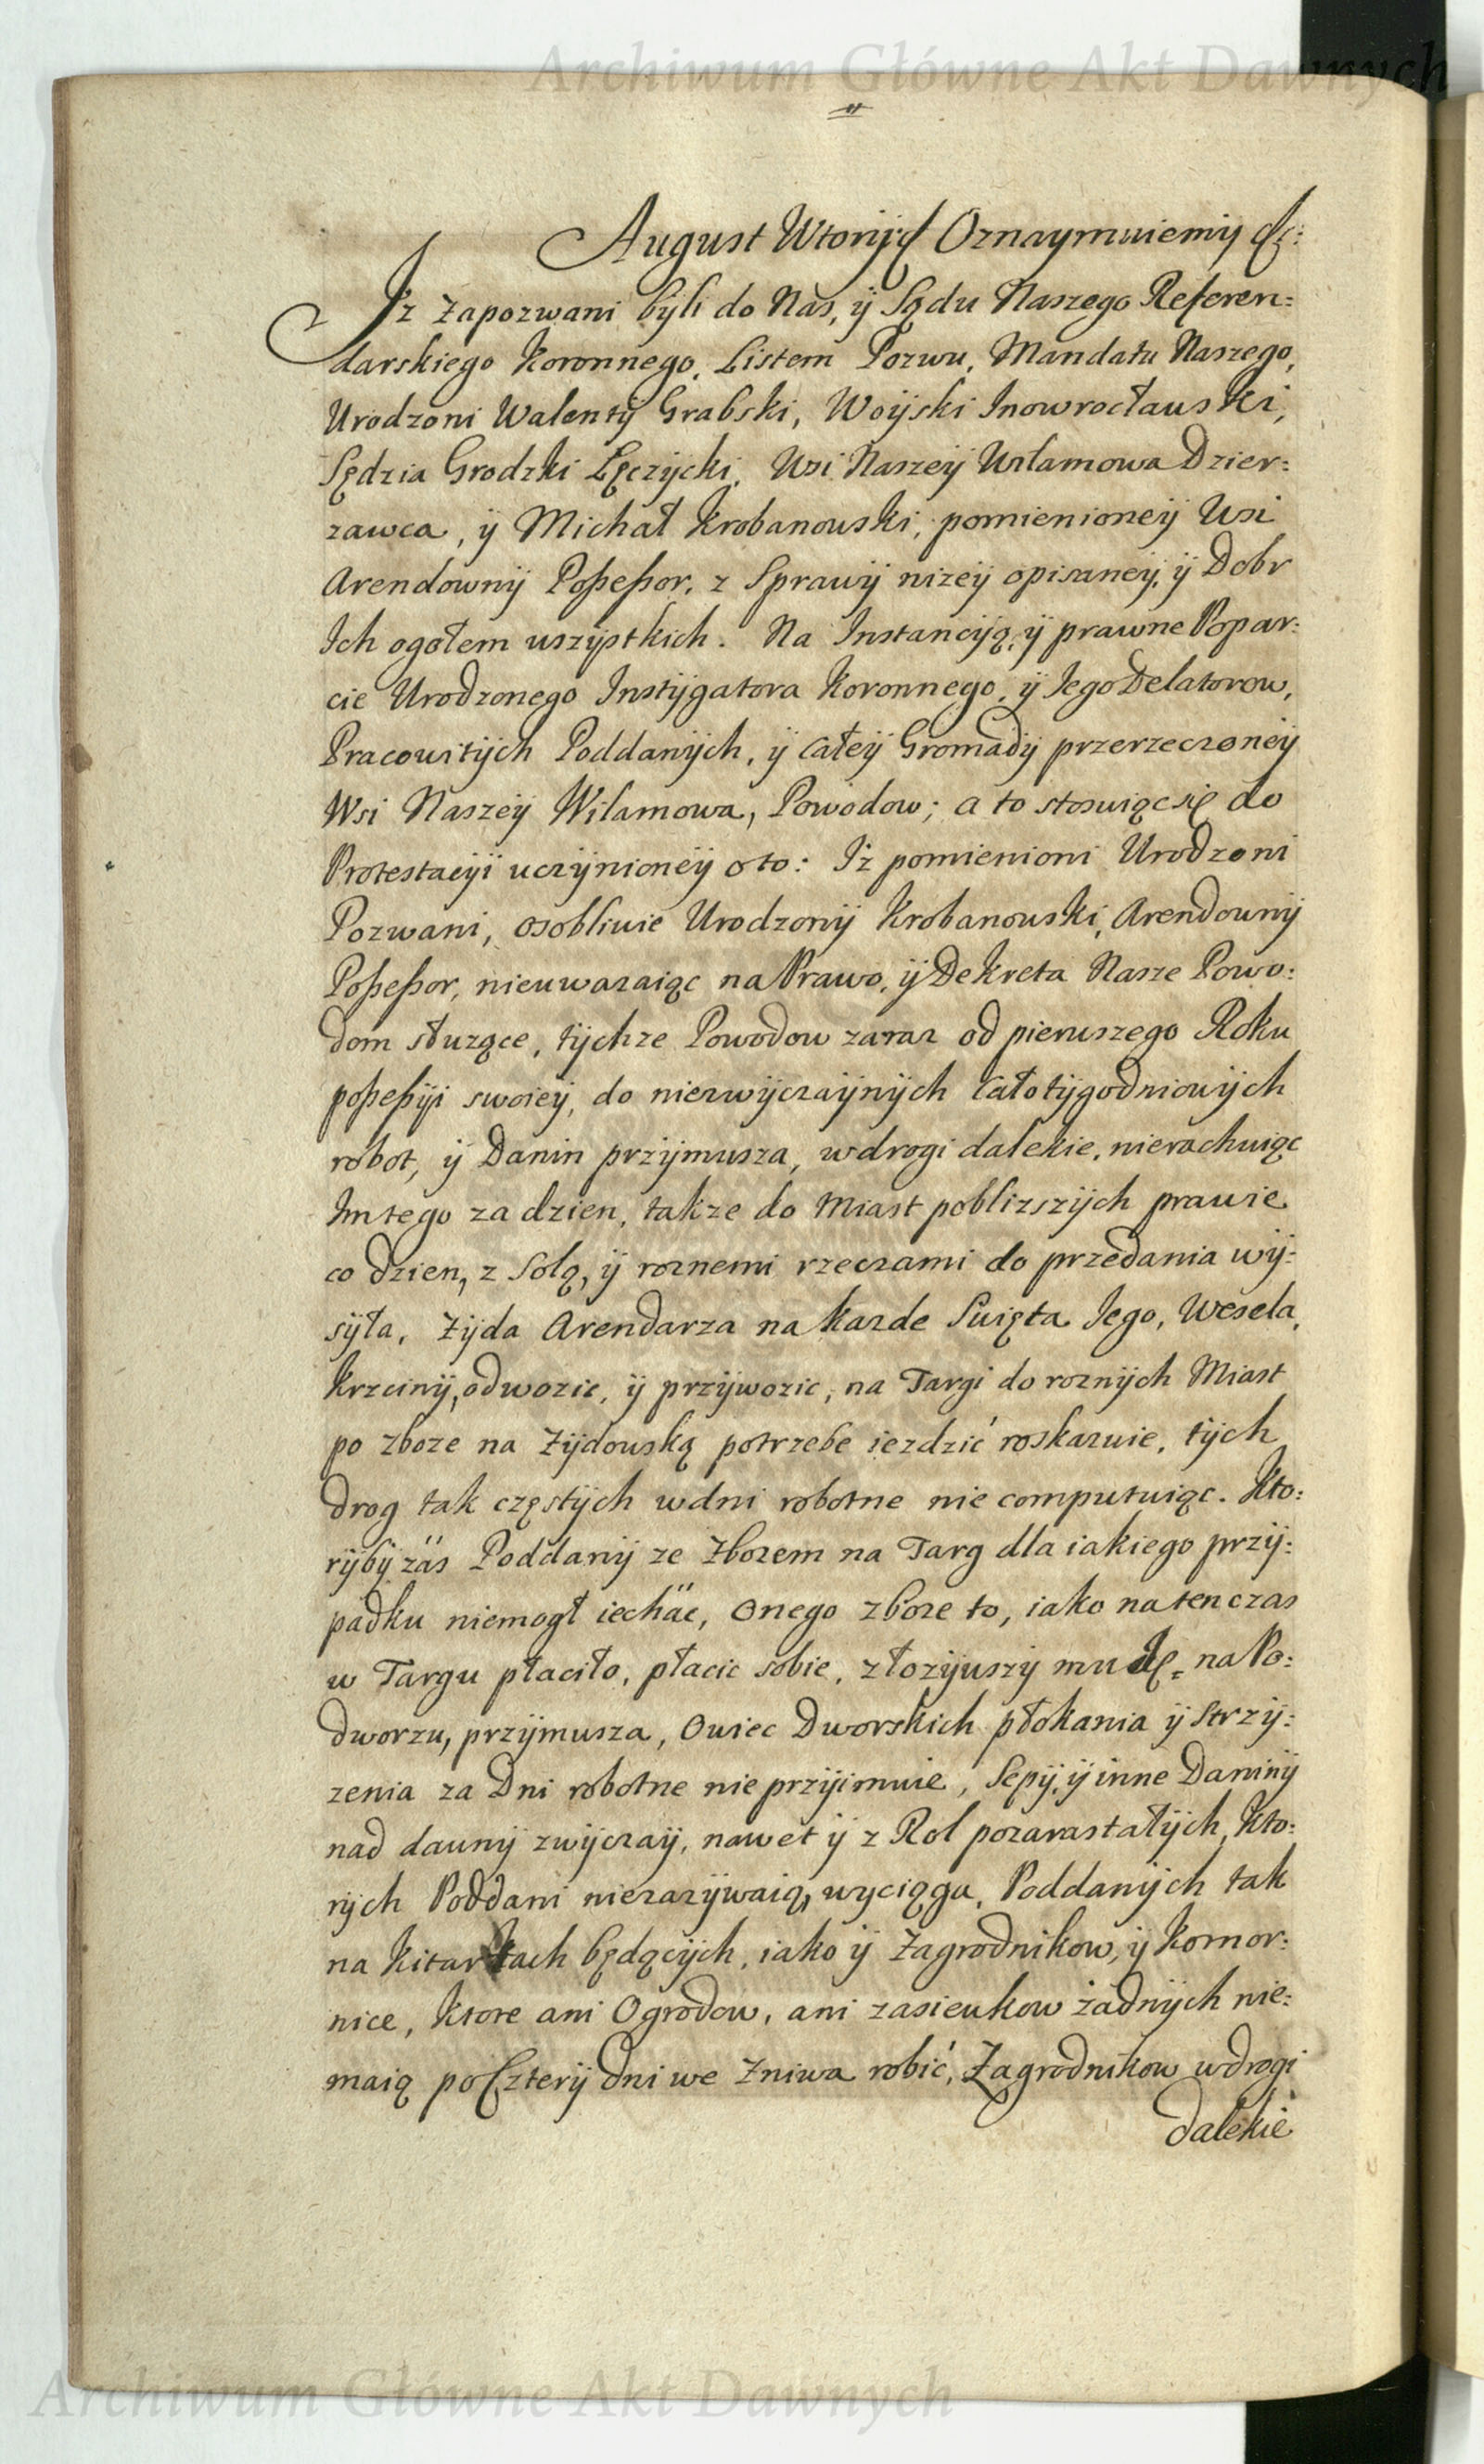 Archiwum Główne Akt Dawnych
August Wtoryij Oznaymuiemy &c:
Iz zapozwani byli do Nas, ÿ Sądu Naszego Referen:
darskiego Koronnego, Listem Pozwu, Mandatu Naszego,
Urodzoni Walentÿ Grabski, Woÿski Inowrocławski,
Sędzia Grodzki Łęczÿcki, Wsi Naszeÿ Wilamowa Dzier:
zawca, ÿ Michał Krobanowski, pomienioneÿ Wsi
Arendownÿ Poßeßor, z Sprawÿ nizeÿ opisaneÿ, ÿ Dobr
Ich ogołem wszÿstkich. Na Instancÿą, ÿ prawne Popar:
cie Urodzonego Instÿgatora Koronnego, ÿ Jego Delatorow,
Pracowitÿch Poddanÿch, ÿ całeÿ Gromadÿ przerzeczoneÿ
Wsi Naszeÿ Wilamowa, Powodow; a to stosuiąc się do
Protestacÿi uczÿnioneÿ oto: Iż pomienioni Urodzoni
Pozwani, osobliwie Urodzonÿ Krobanowski, Arendownÿ
Poßeßor, nieuwazaiąc na Prawo, ÿ Dekreta Nasze Powo:
dom słuzące, tÿchze Powodow zaraz od pierwszego Roku
poßeßÿi swoieÿ, do niezwÿczaÿnÿch całotÿgodniowÿch
robot, ÿ Danin przÿmusza, w drogi dalekie, nierachuiąc
Im tego za dzien, takze do Miast poblizszÿch prawie
co dzien, z Solą, ÿ roznemi rzeczami do przedania wÿ:
sÿła, Zÿda Arendarza na kazde Swięta Jego, Wesela,
krzcinÿ, odwozic, ÿ przÿwozic, na Targi do roznÿch Miast
po zboze na Zÿdowską potrzebe iezdzić roskazuie, tÿch
drog tak częstÿch w dni robotne nie computuiąc. Kto:
rÿbÿ zäs Poddanÿ ze Zbozem na Targ dla iakiego przÿ:
padku niemogł iechäc, onego zboze to, iako na ten czas
w Targu płaciło, płacic sobie, złozÿwszÿ mu na Po:
dworzu, przÿmusza, Owiec Dworskich płokania ÿ Strzÿ:
zenia za Dni robotne nie przÿimuie, Sepÿ, ÿ inne Daninÿ
nad dawnÿ zwÿczaÿ, nawet ÿ z Rol pozarastałÿch, kto:
rÿch Poddani niezazÿwaią, wyciąga, Poddanÿch tak
na Kitarkach będącÿch, iako ÿ Zagrodnikow, ÿ Komor:
nice, ktore ani Ogrodow, ani zasiewkow żadnÿch nie:
maią po Czterÿ dni we Zniwa robić, Zagrodnikow w drogi
dalekie
Archiwum Główne Akt Dawnych